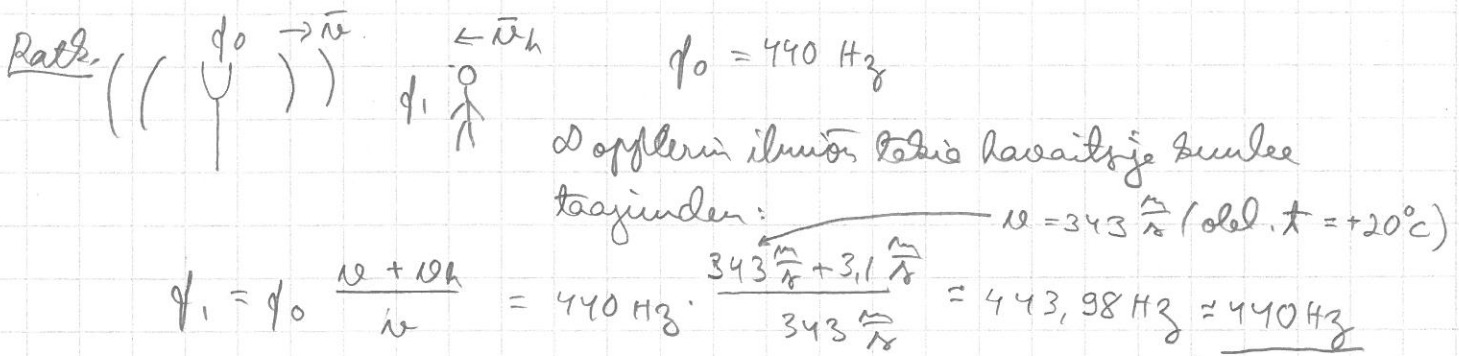 Ratk. f₀ → v̄ ← v̄h f₀ = 440 Hz
f₁
Dopplerin ilmiön takia havaitsija kuulee
taajuuden: v = 343 m/s (olet. t = +20°C)
f₁ = f₀ (v + vh)/v = 440 Hz · (343 m/s + 3,1 m/s)/(343 m/s) = 443,98 Hz ≈ 440 Hz